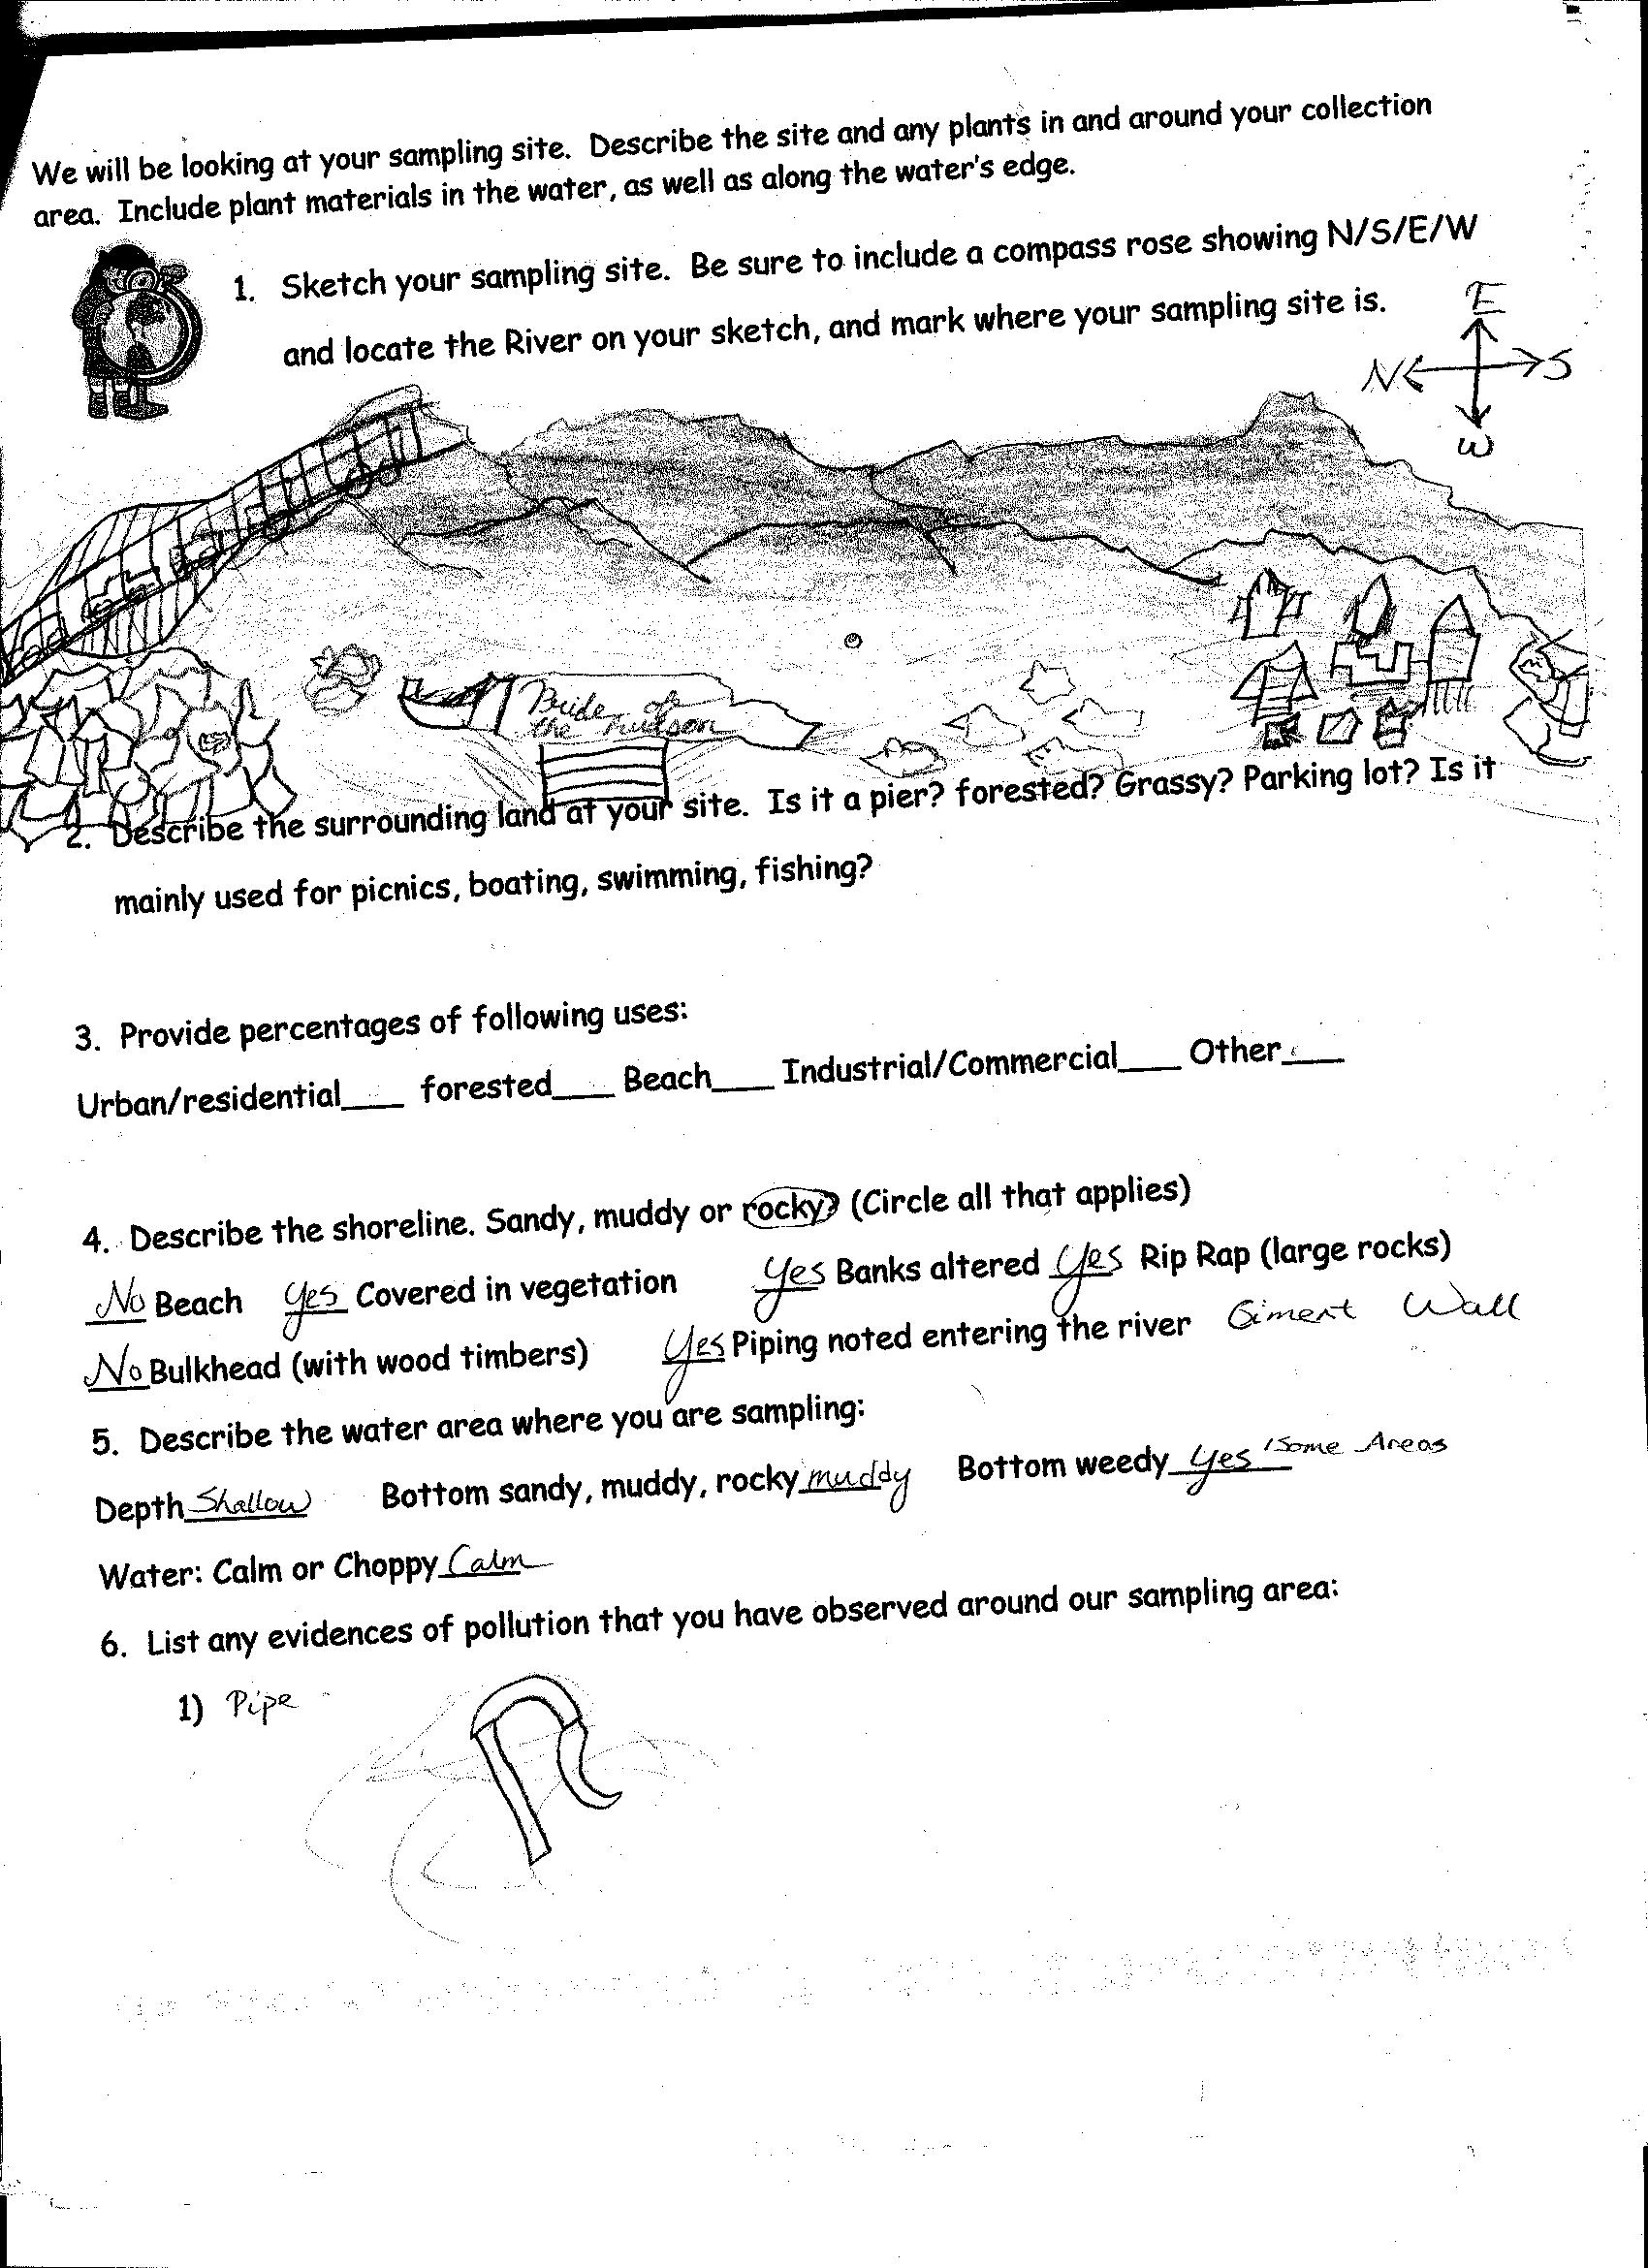 We will be looking at your sampling site. Describe the site and any plants in and around your collection
area. Include plant materials in the water, as well as along the water's edge.
1. Sketch your sampling site. Be sure to include a compass rose showing N/S/E/W
and locate the River on your sketch, and mark where your sampling site is.
E
N S
W
Pride of
the hudson
2. Describe the surrounding land at your site. Is it a pier? forested? Grassy? Parking lot? Is it
mainly used for picnics, boating, swimming, fishing?
3. Provide percentages of following uses:
Urban/residential___ forested___ Beach___ Industrial/Commercial___ Other___
4. Describe the shoreline. Sandy, muddy or rocky? (Circle all that applies)
No Beach yes Covered in vegetation yes Banks altered yes Rip Rap (large rocks)
No Bulkhead (with wood timbers) Yes Piping noted entering the river Ciment Wall
5. Describe the water area where you are sampling:
Depth Shallow Bottom sandy, muddy, rocky muddy Bottom weedy yes /Some Areas
Water: Calm or Choppy Calm
6. List any evidences of pollution that you have observed around our sampling area:
1) Pipe